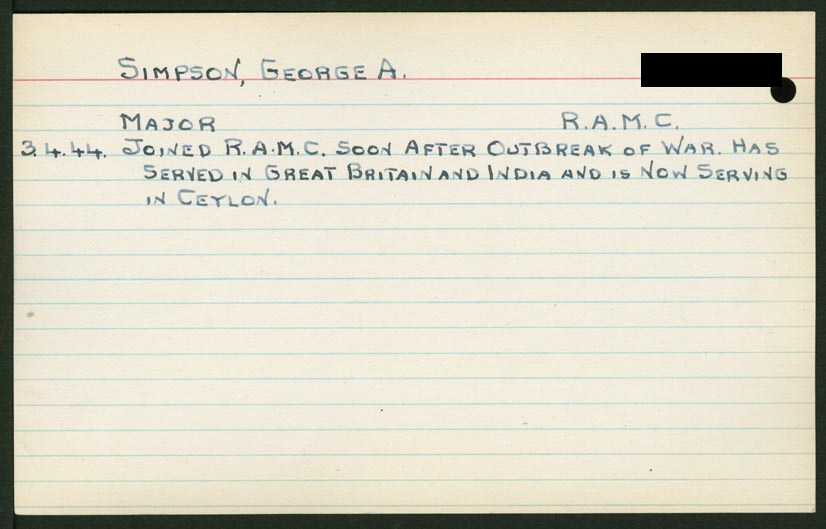 SIMPSON, GEORGE A.
MAJOR R.A.M.C.
3.4.44. JOINED R.A.M.C. SOON AFTER OUTBREAK OF WAR. HAS
SERVED IN GREAT BRITAIN AND INDIA AND IS NOW SERVING
IN CEYLON.